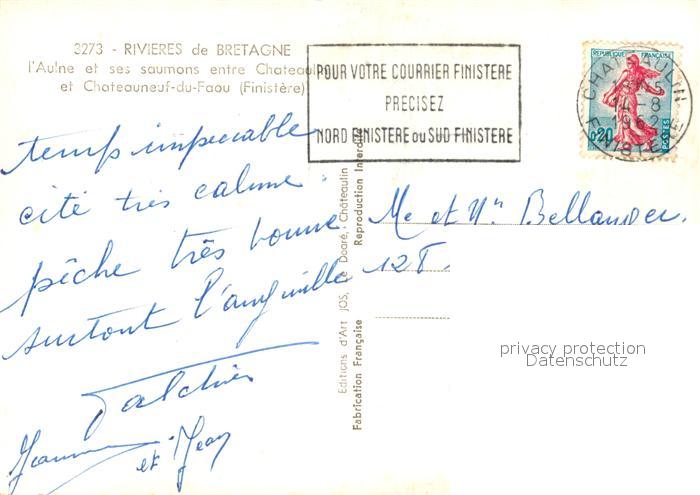 3273 - RIVIERES de BRETAGNE
l'Aulne et ses saumons entre Chateaulin
et Chateauneuf-du-Faou (Finistère)
POUR VOTRE COURRIER FINISTERE
PRECISEZ
NORD FINISTERE ou SUD FINISTERE
REPUBLIQUE FRANCAISE
0,20
POSTES
CHATEAULIN
14-8
1962
FINISTERE
temps impeccable
cité très calme.
pêche très bonne
surtout l'anguille
Jeanne
et Jean
Me et Mr Bellanger.
12 T.
Editions d'Art JOS, Le Doaré, Châteaulin
Fabrication Française Reproduction Interdite
privacy protection
Datenschutz